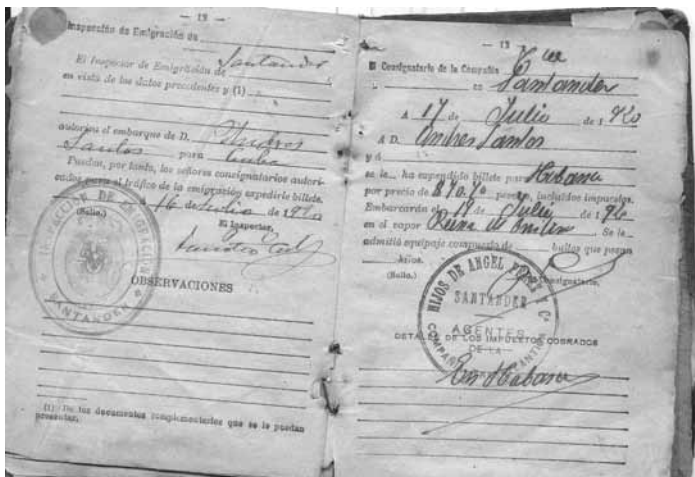 — 12 —
Inspección de Emigración de
El Inspector de Emigración de Santander
en vista de los datos precedentes y (1)
autoriza el embarque de D. Andres
Santos para Cuba
Puedan, por tanto, los señores consignatarios autori-
zados para el tráfico de la emigración expedirle billete.
a 16 de Julio de 1920
(Sello.)
El Inspector,
INSPECCIÓN DE EMIGRACIÓN
SANTANDER
OBSERVACIONES
(1) De los documentos complementarios que se le puedan
presentar.
— 13 —
El Consignatario de la Compañía
en Santander
A 17 de Julio de 1920
A D. Andres Santos
y á
se le ha expendido billete para Habana
por precio de pesetas, incluidos impuestos.
Embarcarán el 19 de Julio de 1920
en el vapor Reina Mª Cristina Se le
admitió equipaje compuesto de bultos que pesan
kilos.
(Sello.)
Consignatario,
HIJOS DE ANGEL PEREZ Y Cª
SANTANDER
AGENTES
DE LA
COMPAÑIA TRASATLANTICA
DETALLE DE LOS IMPUESTOS COBRADOS
Habana